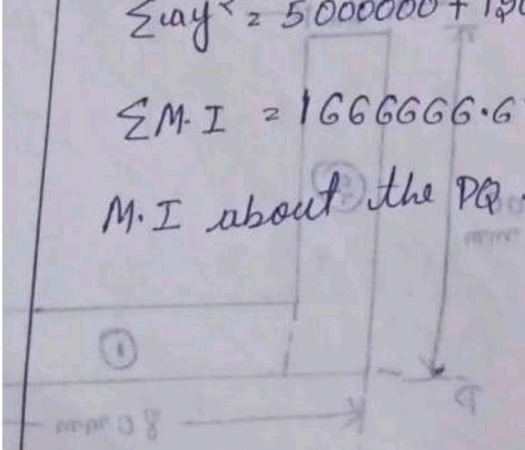 Σay² = 5000000 + 190
ΣM.I = 1666666.6
M.I about the PQ
①
80 mm